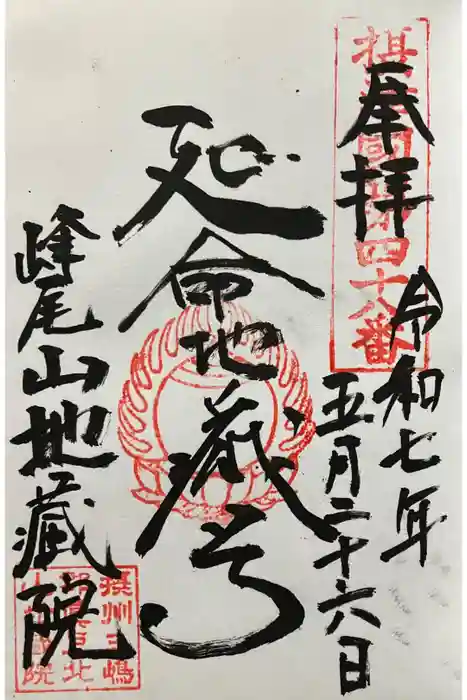 奉拝
令和七年
五月二十六日
延命地蔵尊
峰尾山地蔵院
摂津國第四十八番
摂州三嶋